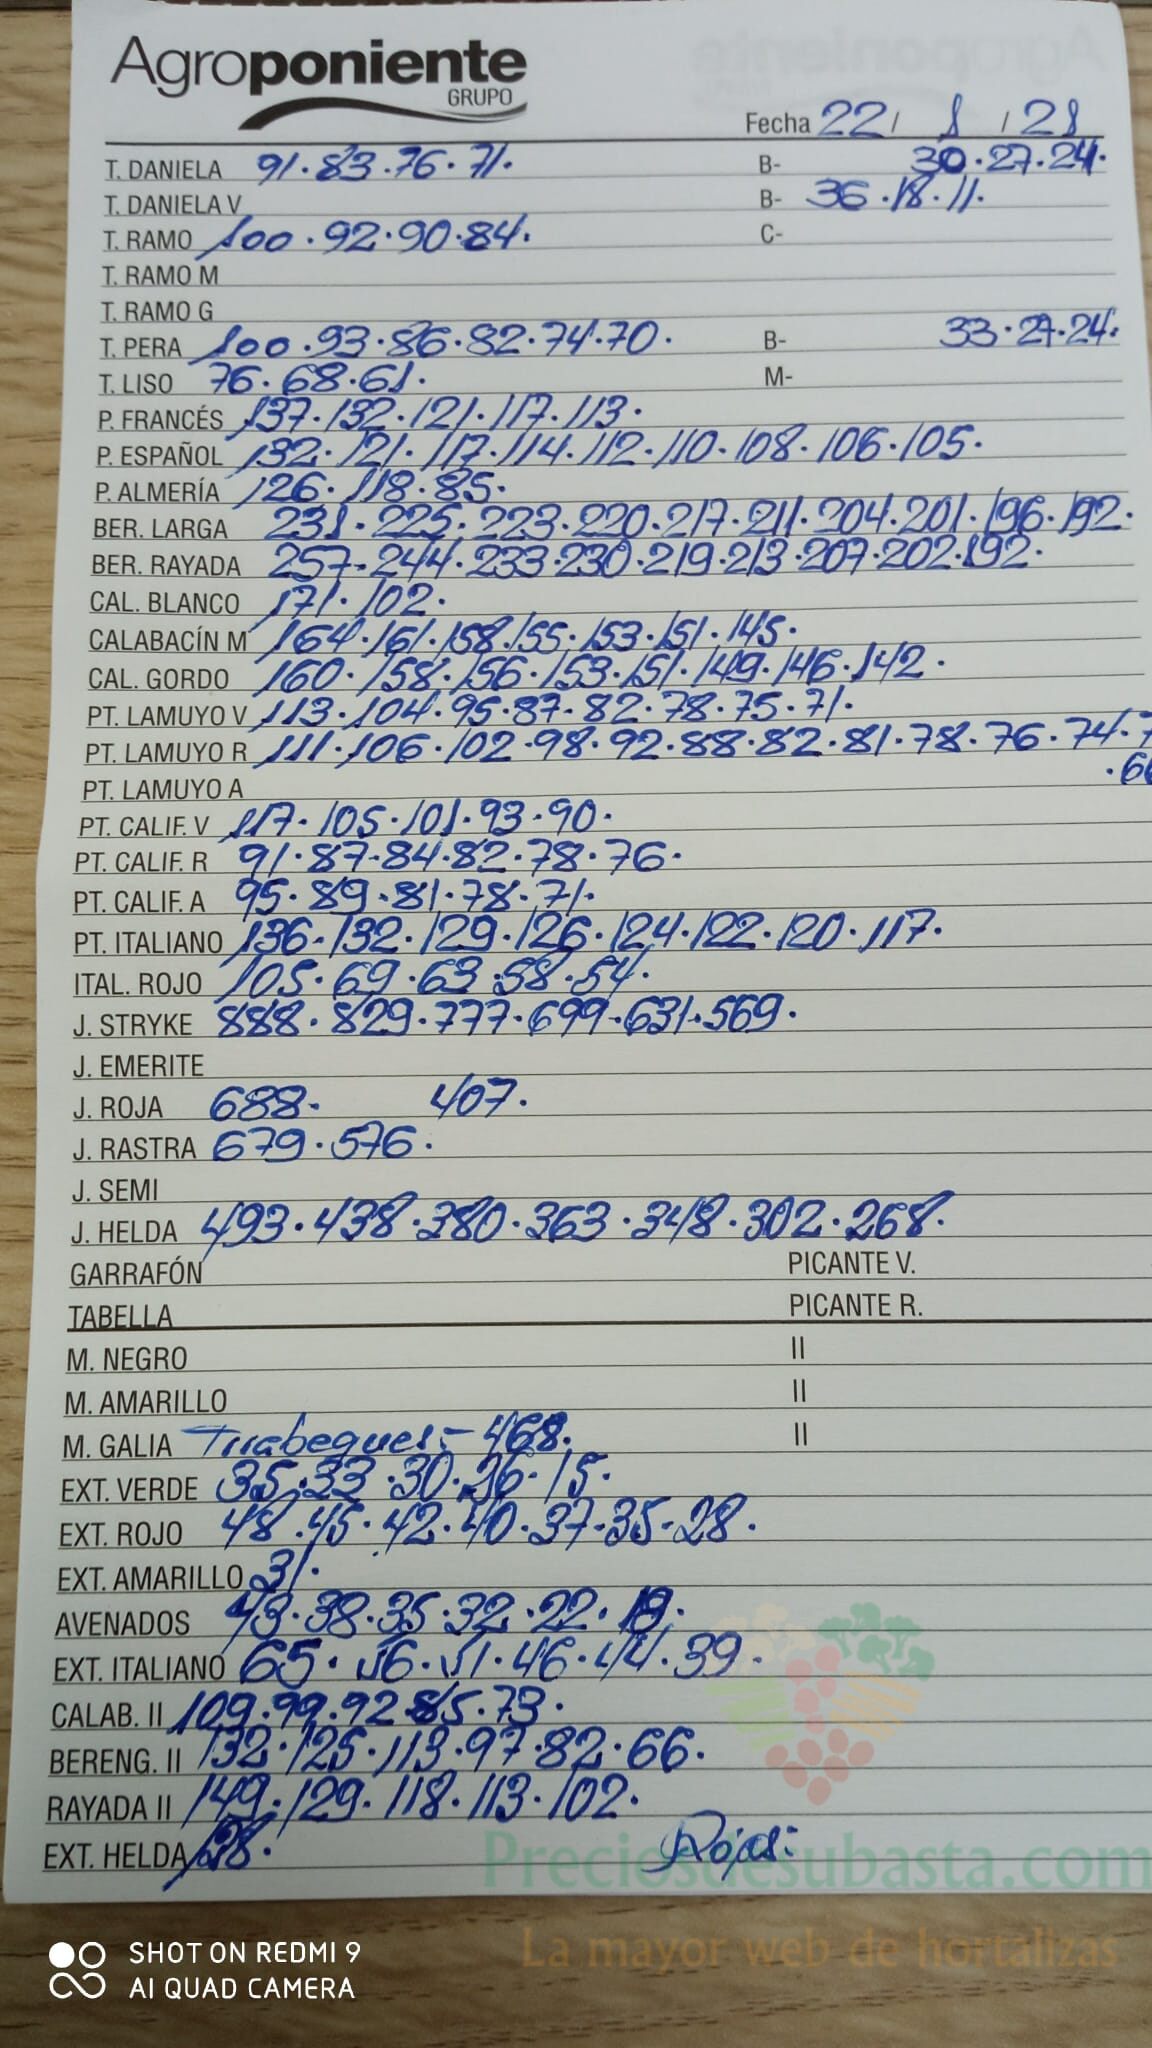 Agroponiente
GRUPO
Fecha 22 / 1 / 21
T. DANELA 91.83.76.71. B- 30.27.24.
T. DANIELA V B- 36.18.11.
T. RAMO 100.92.90.84. C-
T. RAMO M
T. RAMO G
T. PERA 100.93.86.82.74.70. B- 33.27.24.
T. LISO 76.68.61. M-
P. FRANCÉS 137.132.121.117.113.
P. ESPAÑOL 132.121.117.114.112.110.108.106.105.
P. ALMERÍA 126.118.85.
BER. LARGA 231.225.223.220.217.211.204.201.196.192.
BER. RAYADA 257.244.233.230.219.213.207.202.192.
CAL. BLANCO 171.102.
CALABACÍN M 164.161.158.155.153.151.145.
CAL. GORDO 160.158.156.153.151.149.146.142.
PT. LAMUYO V 113.104.95.87.82.78.75.71.
PT. LAMUYO R 111.106.102.98.92.88.82.81.78.76.74.
PT. LAMUYO A
PT. CALIF. V 117.105.101.93.90.
PT. CALIF. R 91.87.84.82.78.76.
PT. CALIF. A 95.89.81.78.71.
PT. ITALIANO 136.132.129.126.124.122.120.117.
ITAL. ROJO 105.69.63.58.54.
J. STRYKE 888.829.777.699.631.569.
J. EMERITE
J. ROJA 688. 407.
J. RASTRA 679.576.
J. SEMI
J. HELDA 493.438.380.363.348.302.268.
GARRAFÓN PICANTE V.
TABELLA PICANTE R.
M. NEGRO II
M. AMARILLO II
M. GALIA 468. II
EXT. VERDE 35.33.30.26.15.
EXT. ROJO 48.45.42.40.37.35.28.
EXT. AMARILLO 31.
AVENADOS 43.38.35.32.22.19.
EXT. ITALIANO 65.56.51.46.44.39.
CALAB. II 109.99.92.85.73.
BERENG. II 132.125.113.97.82.66.
RAYADA II 149.129.118.113.102.
EXT. HELDA 128. Rojas:
Preciosdesubasta.com
La mayor web de hortalizas
SHOT ON REDMI 9
AI QUAD CAMERA